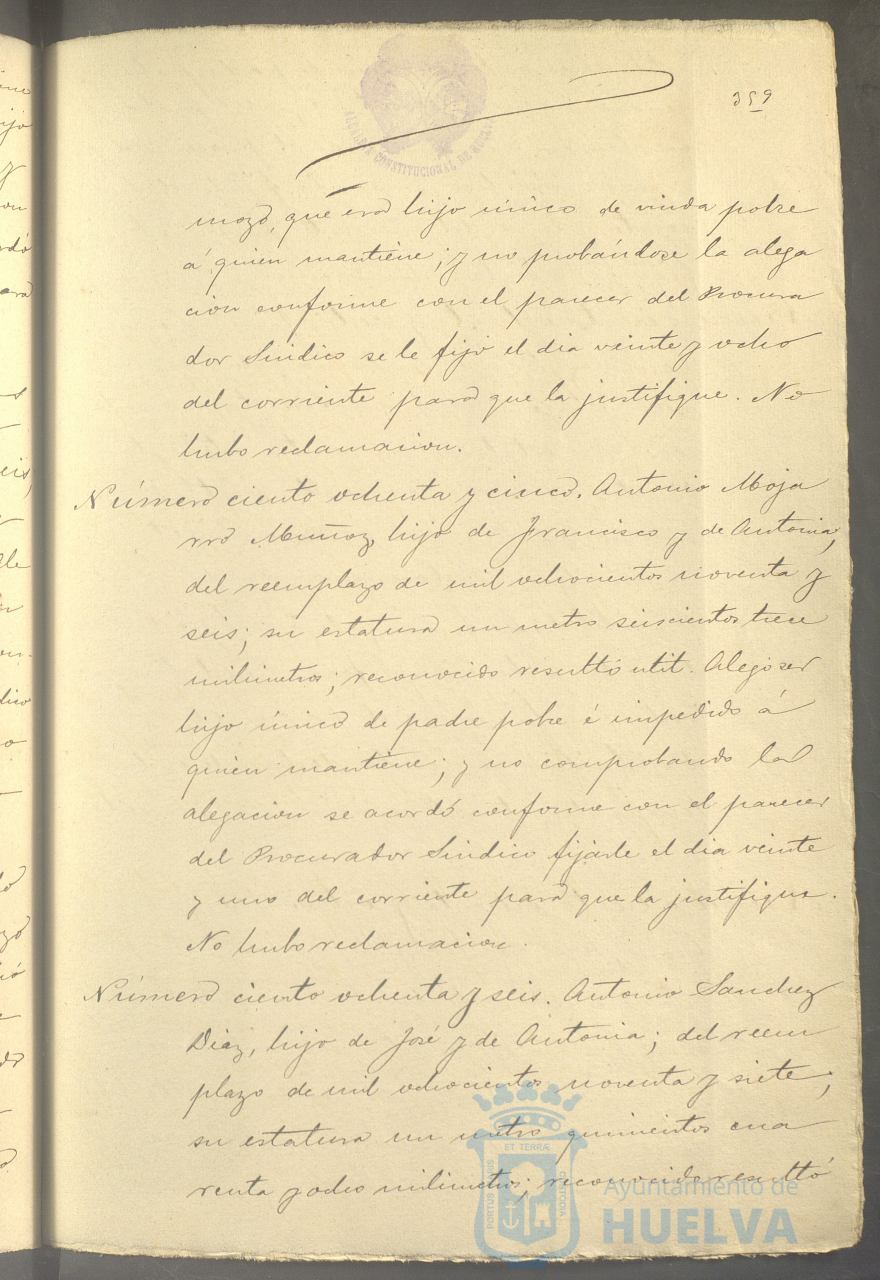 359
ALCALDIA CONSTITUCIONAL DE HUELVA
mozo, que era hijo único de viuda pobre
á quien mantiene; y no probándose la alega
ción conforme con el parecer del Procura
dor Síndico se le fijó el dia veinte y ocho
del corriente para que la justifique. No
hubo reclamacion.
Número ciento ochenta y cinco. Antonio Moja
rro Muñoz, hijo de Francisco y de Antonia,
del reemplazo de mil ochocientos noventa y
seis; su estatura un metro seiscientos trece
milimetros; reconocido resultó util. Alegó ser
hijo único de padre pobre é impedido á
quien mantiene; y no comprobando la
alegacion se acordó conforme con el parecer
del Procurador Síndico fijarle el dia veinte
y uno del corriente para que la justifique.
No hubo reclamacion.
Número ciento ochenta y seis. Antonio Sanchez
Diaz, hijo de José y de Antonia; del reem
plazo de mil ochocientos noventa y siete;
su estatura un metro quinientos cua
renta y ocho milimetros; reconocido resultó
PORTUS MARIS
ET TERRÆ
CUSTODIA
Ayuntamiento de
HUELVA